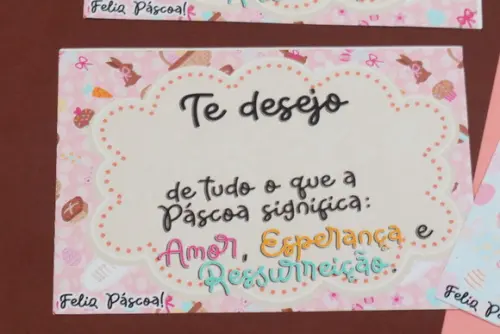 Feliz Páscoa!
Te desejo
de tudo o que a
Páscoa significa:
Amor, Esperança e
Ressurreição.
Feliz Páscoa!